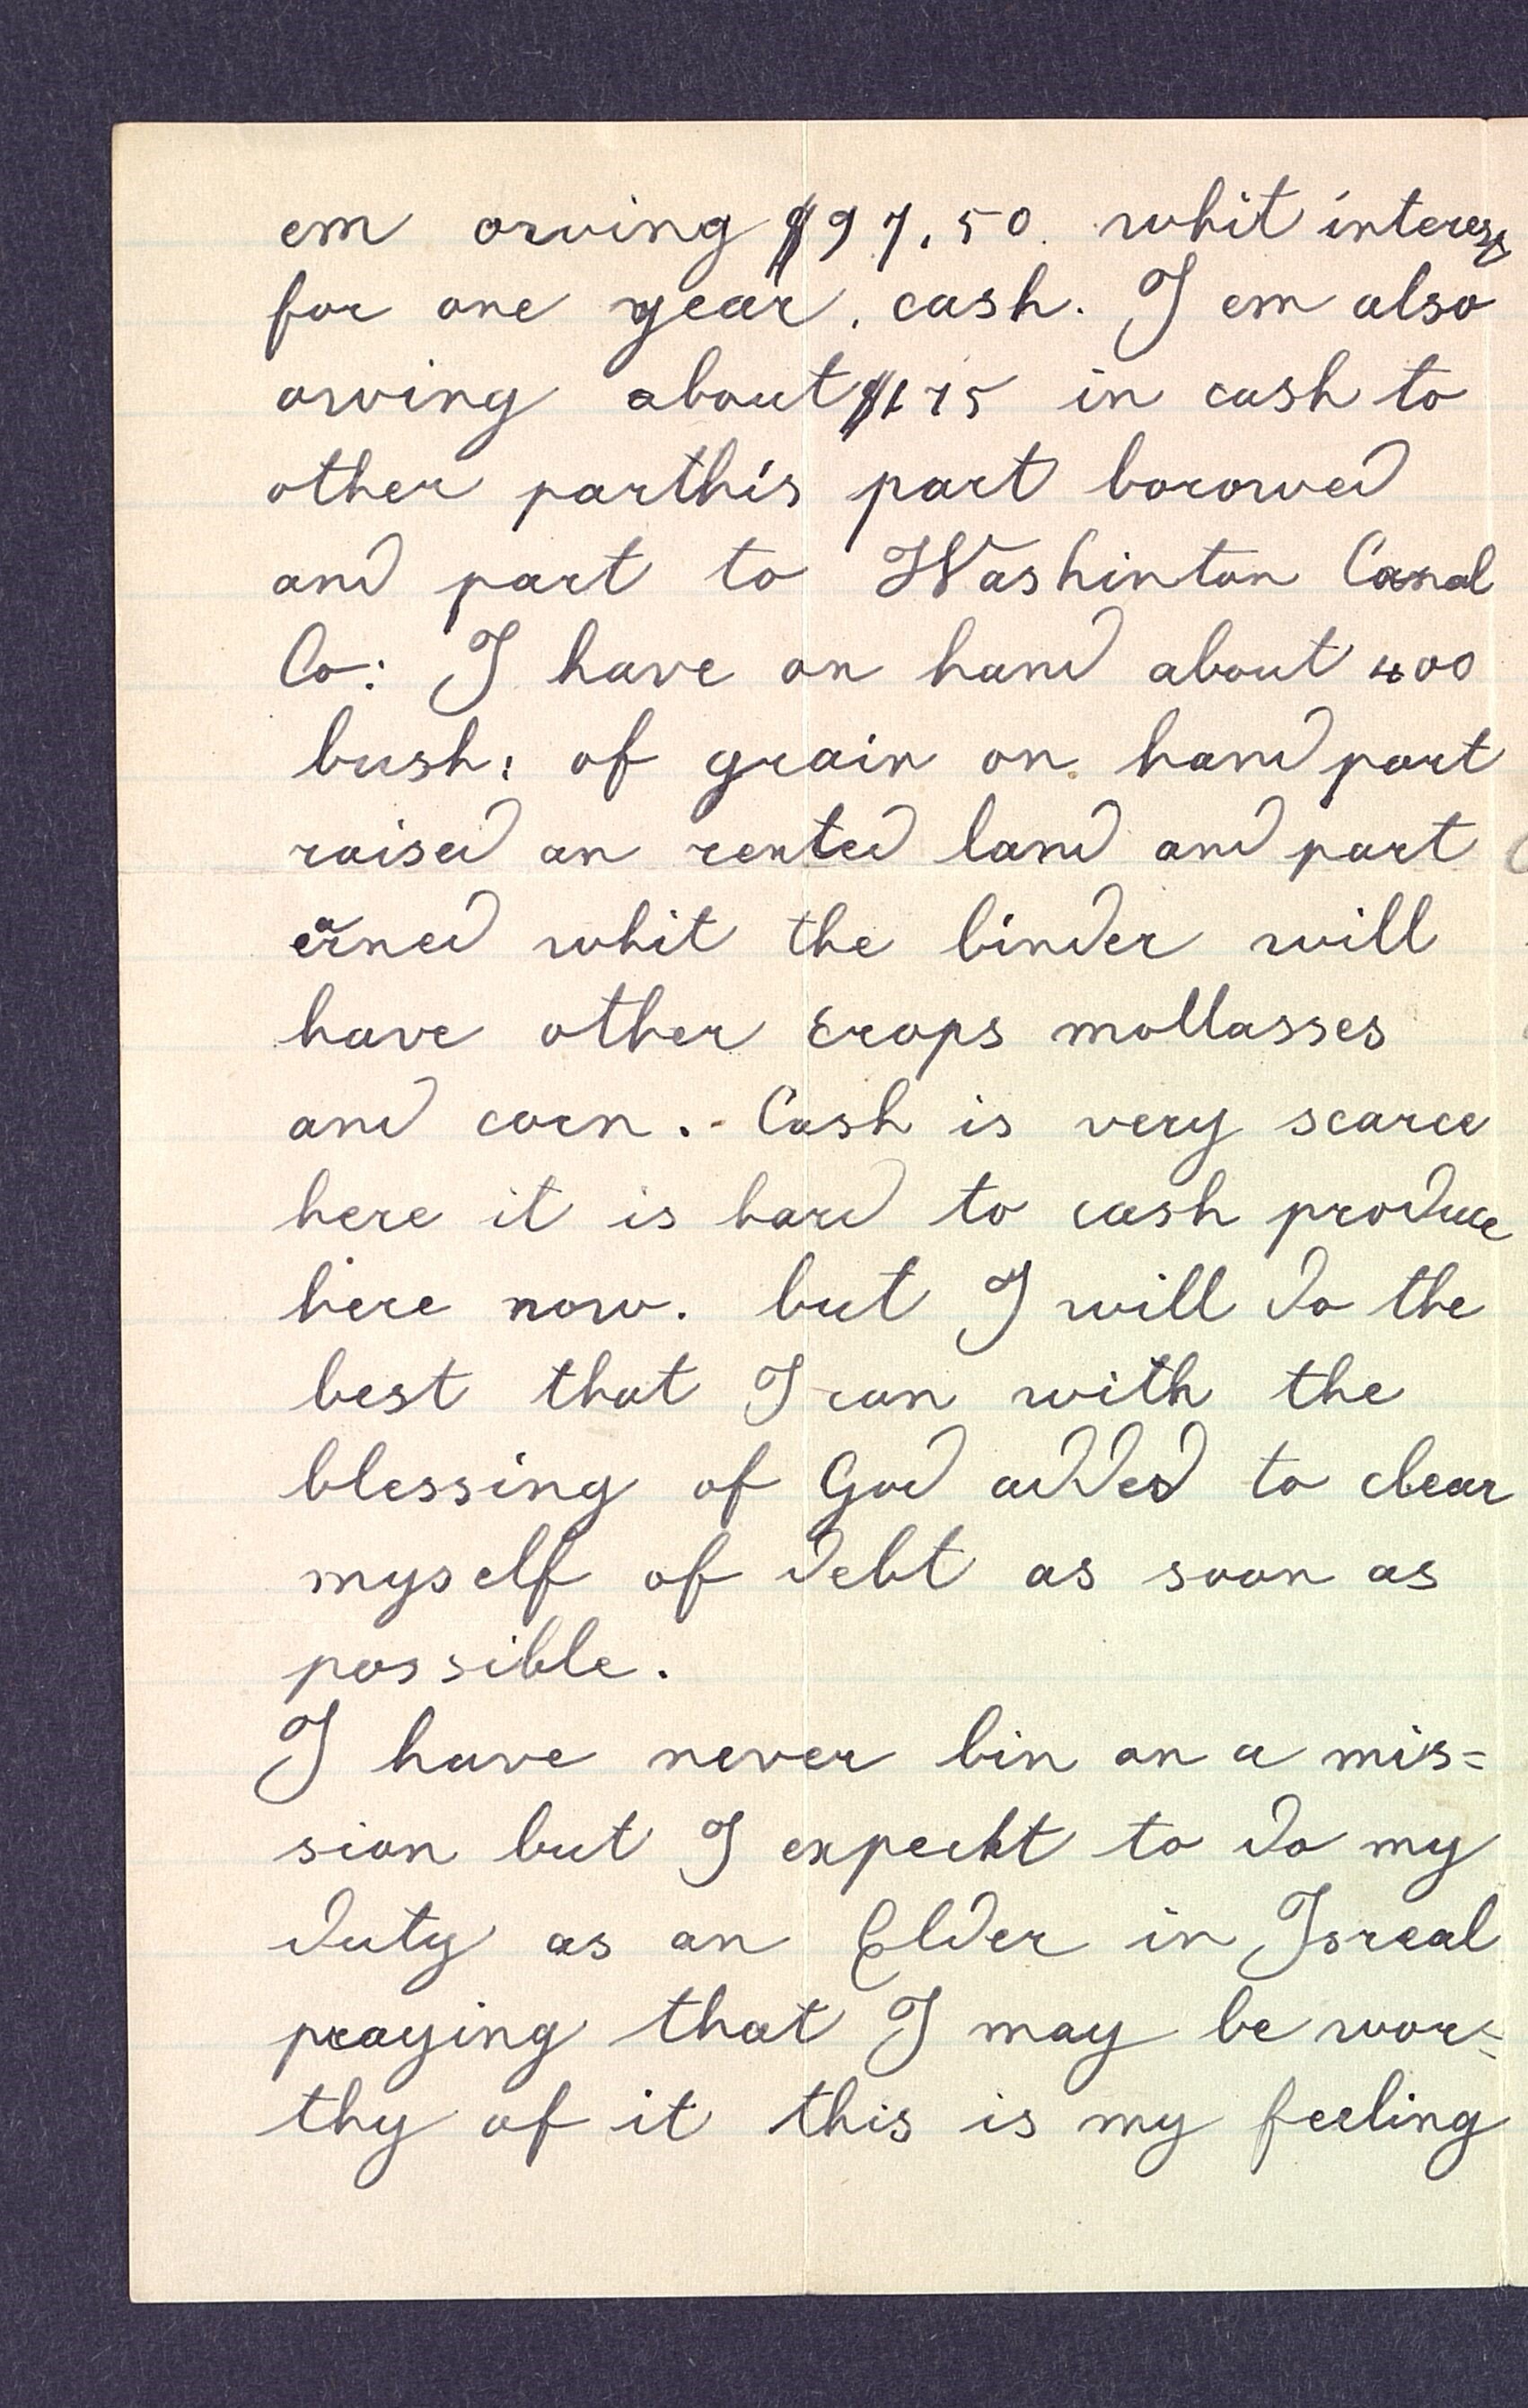 em owing $97.50. whit interest
for one year. cash. I em also
owing about $175 in cash to
other parthis part borowed
and part to Washinton Canal
Co: I have on hand about 400
bush: of grain on hand part
raised on rented land and part
earned whit the binder will
have other crops mollasses
and corn. - Cash is very scarce
here it is hard to cash produce
here now. but I will do the
best that I can with the
blessing of God added to clear
myself of debt as soon as
possible.
I have never bin on a mis=
sion but I expeckt to do my
duty as an Elder in Isreal
praying that I may be wor=
thy of it this is my feeling